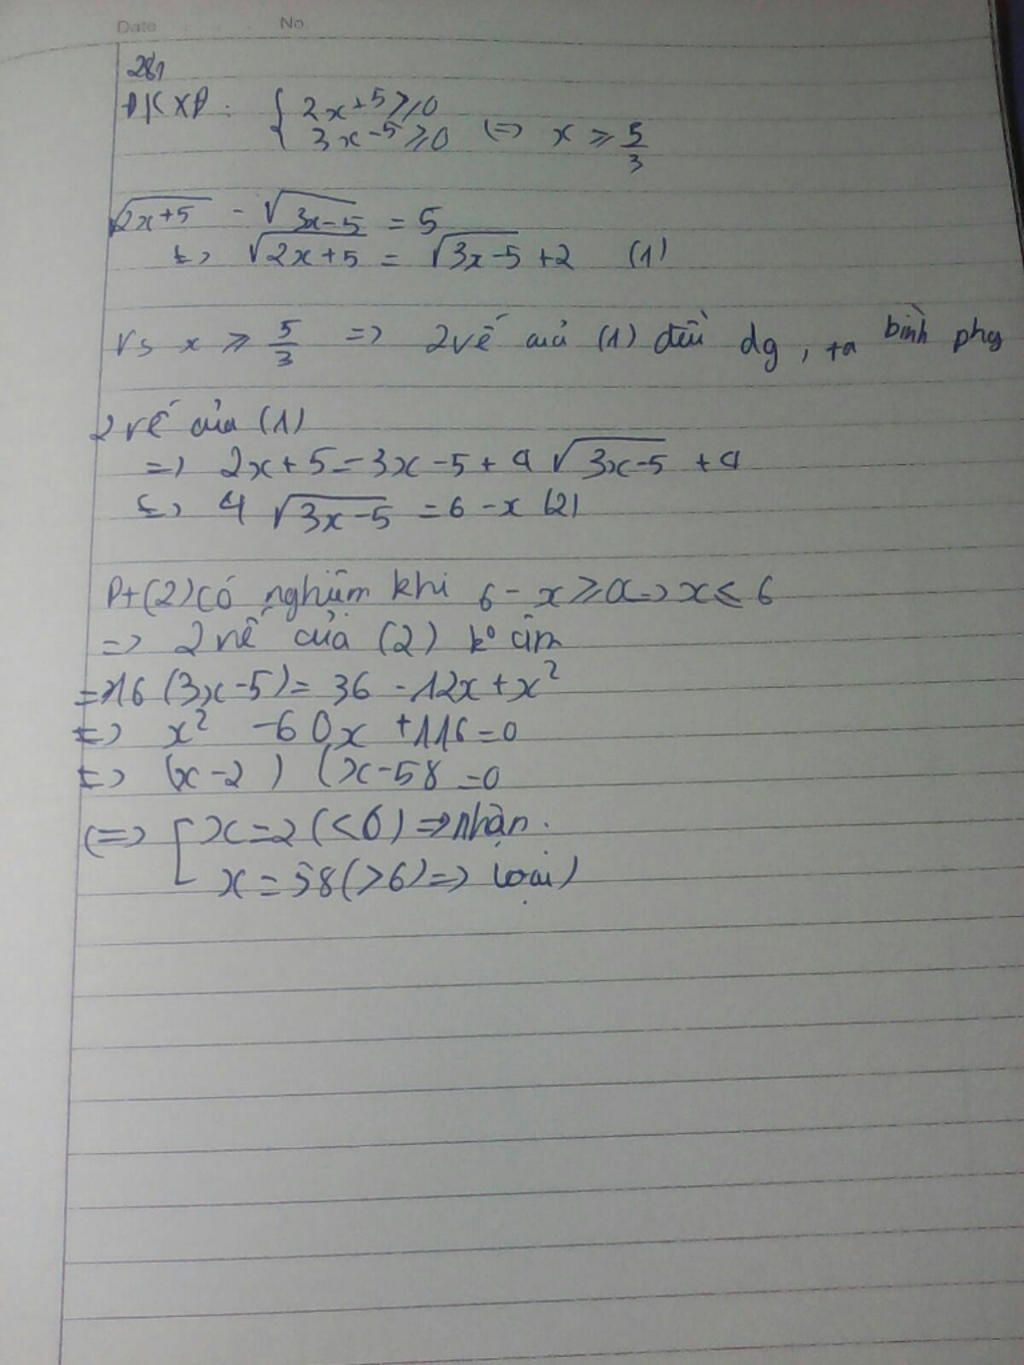 Date No
281
ĐKXĐ: { 2x+5 ≥ 0
3x-5 ≥ 0 <=> x ≥ 5/3
√(2x+5) - √(3x-5) = 5
<=> √(2x+5) = √(3x-5) + 2 (1)
Vs x ≥ 5/3 => 2 vế của (1) đều dg, ta bình phg
2 vế của (1)
=> 2x+5 = 3x-5+4√(3x-5) +4
<=> 4√(3x-5) = 6-x (2)
Pt (2) có nghiệm khi 6-x ≥ 0 => x ≤ 6
=> 2 vế của (2) ko âm
=> 16(3x-5) = 36-12x+x²
<=> x² -60x +116=0
<=> (x-2) (x-58 =0
<=> [ x=2 (<6) => nhận.
x=58 (>6) => loại)